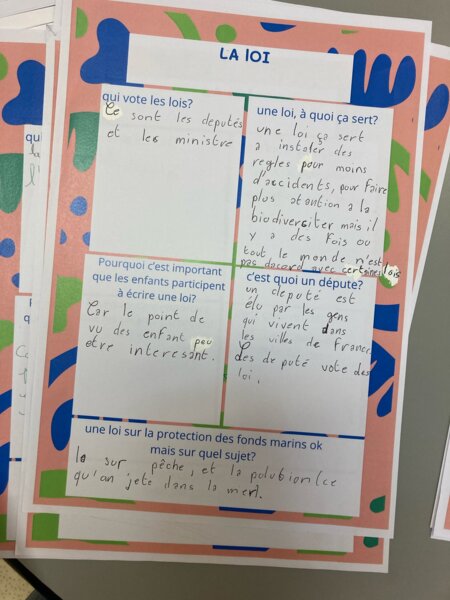 LA lOI
qui vote les lois?
Ce sont les députés
et les ministre
une loi, à quoi ça sert?
une loi ça sert
a instaler des
regles pour moins
d'accidents, pour faire
plus atention a la
biodiverciter mais il
y a des fois ou
tout le monde n'est
pas dacord avec certaines lois
Pourquoi c'est important
que les enfants participent
à écrire une loi?
Car le point de
vu des enfant peu
etre interesant.
c'est quoi un député?
un deputé est
élu par les gens
qui vivent dans
les villes de France
des deputé vote des
loi.
une loi sur la protection des fonds marins ok
mais sur quel sujet?
la sur pêche, et la polution (ce
qu'on jete dans la mer).
qui